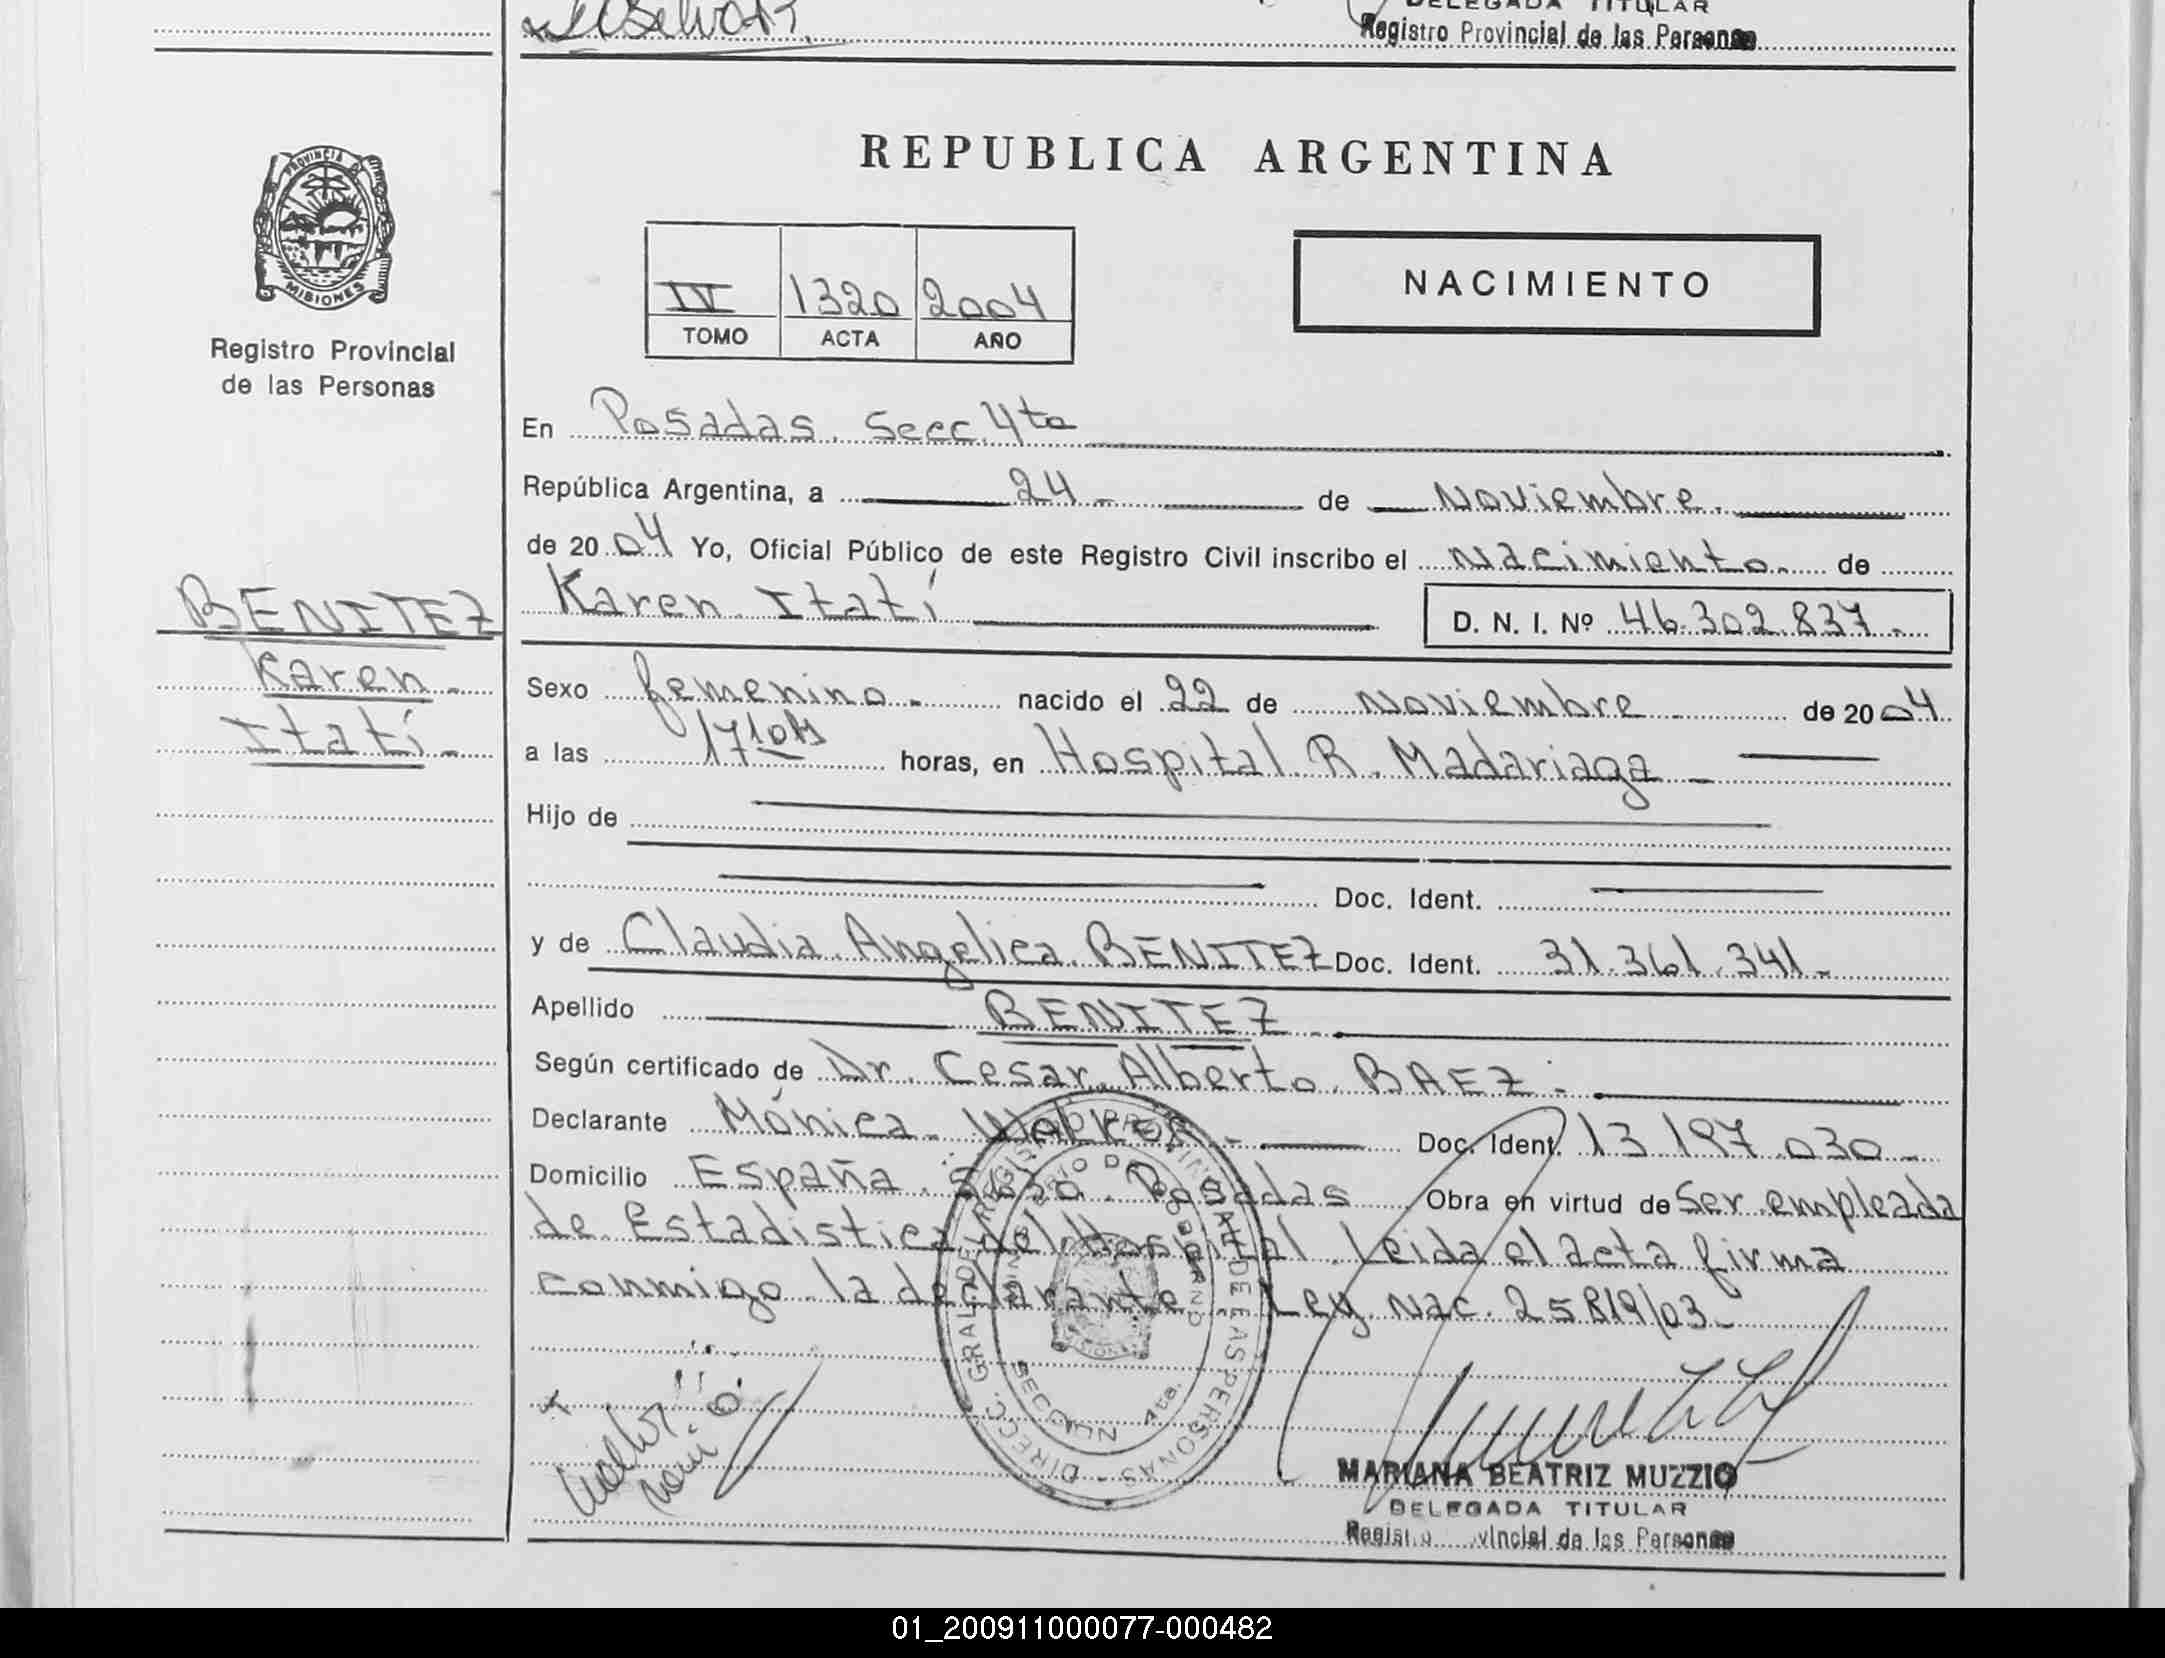 DELEGADA TITULAR
Registro Provincial de las Personas
PROVINCIA DE
MISIONES
Registro Provincial
de las Personas
REPUBLICA ARGENTINA
IV 1320 2004
TOMO ACTA AÑO
NACIMIENTO
En Posadas. Secc. 4ta
República Argentina, a 24 de Noviembre.
de 2004 Yo, Oficial Público de este Registro Civil inscribo el Nacimiento de
BENITEZ
Karen Itatí
D. N. I. Nº 46.302.837
Karen
Itatí
Sexo femenino. nacido el 22 de Noviembre de 2004
a las 17 10 hs horas, en Hospital R. Madariaga
Hijo de
Doc. Ident.
y de Claudia Angelica BENITEZ Doc. Ident. 31.361.341
Apellido BENITEZ
Según certificado de Dr. Cesar Alberto BAEZ
Declarante Mónica Doc. Ident. 13.197.030
Domicilio España Posadas Obra en virtud de ser empleada
de Estadistica del Hospital. Leida el acta firma
conmigo la declarante. Ley Nac. 25819/03
DIRECC. GRAL. DEL REGISTRO PROVINCIAL DE LAS PERSONAS
MINISTERIO DE GOBIERNO
SECCION 4ta.
MARIANA BEATRIZ MUZZIO
DELEGADA TITULAR
Registro Provincial de las Personas
01_200911000077-000482